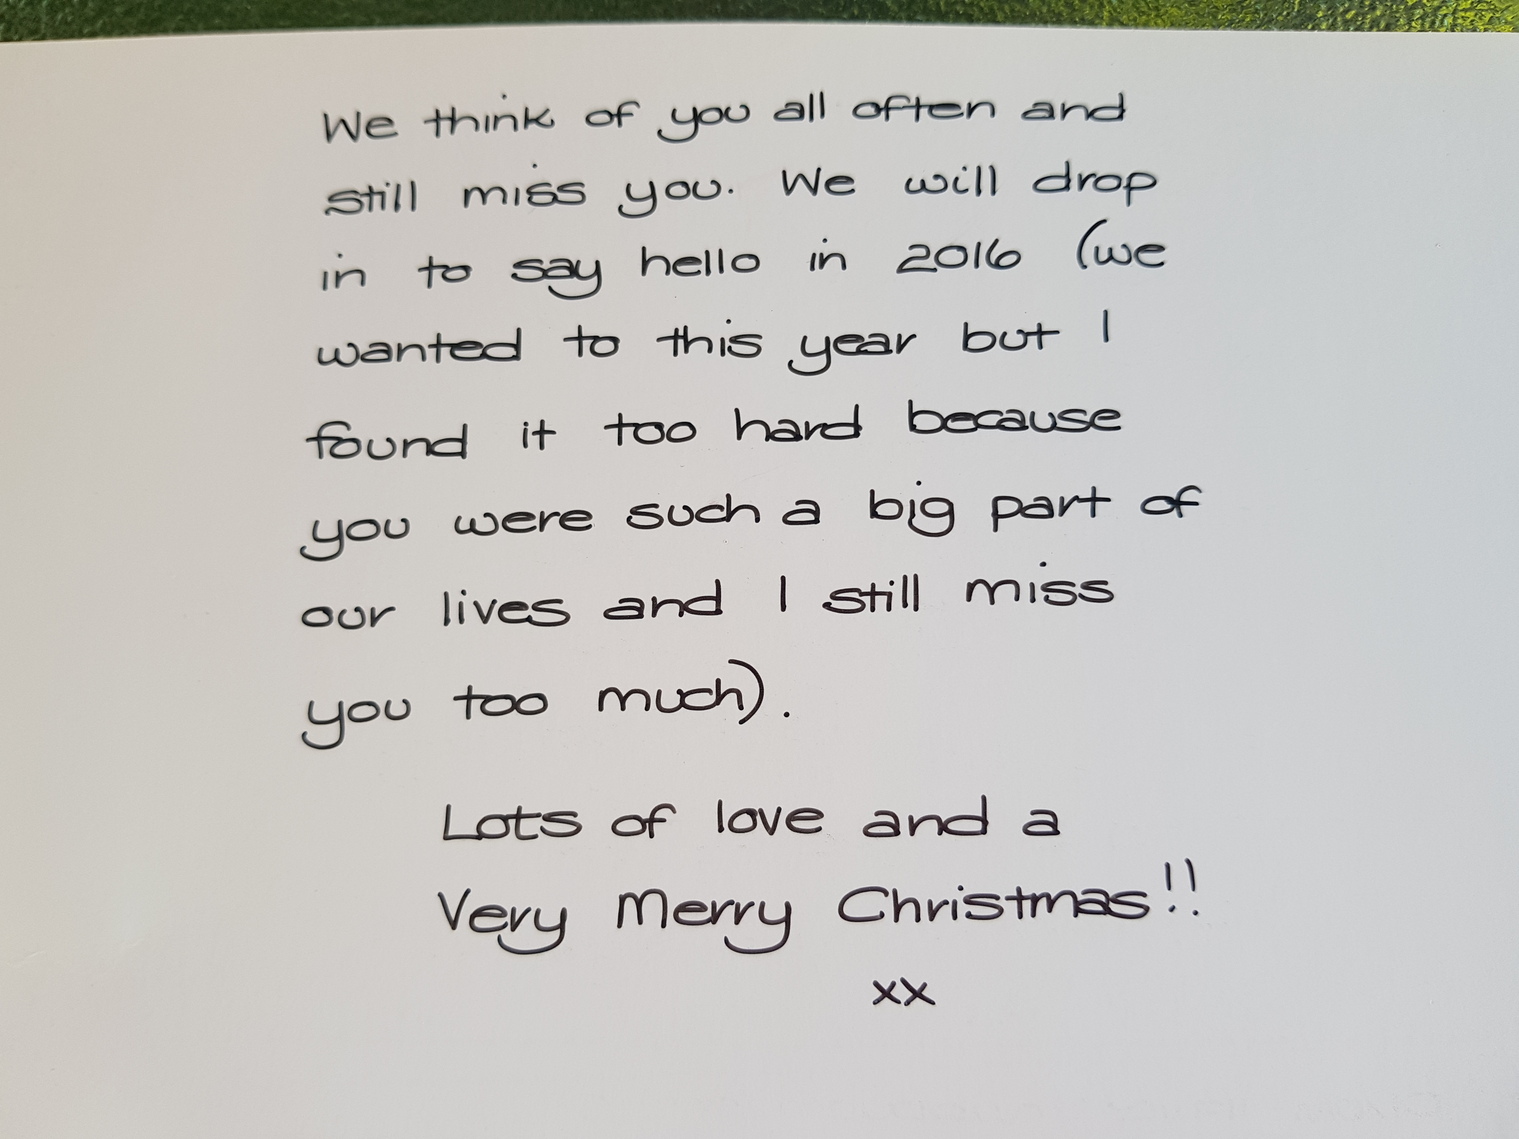 We think of you all often and
still miss you. We will drop
in to say hello in 2016 (we
wanted to this year but I
found it too hard because
you were such a big part of
our lives and I still miss
you too much).
Lots of love and a
Very Merry Christmas!!
xx